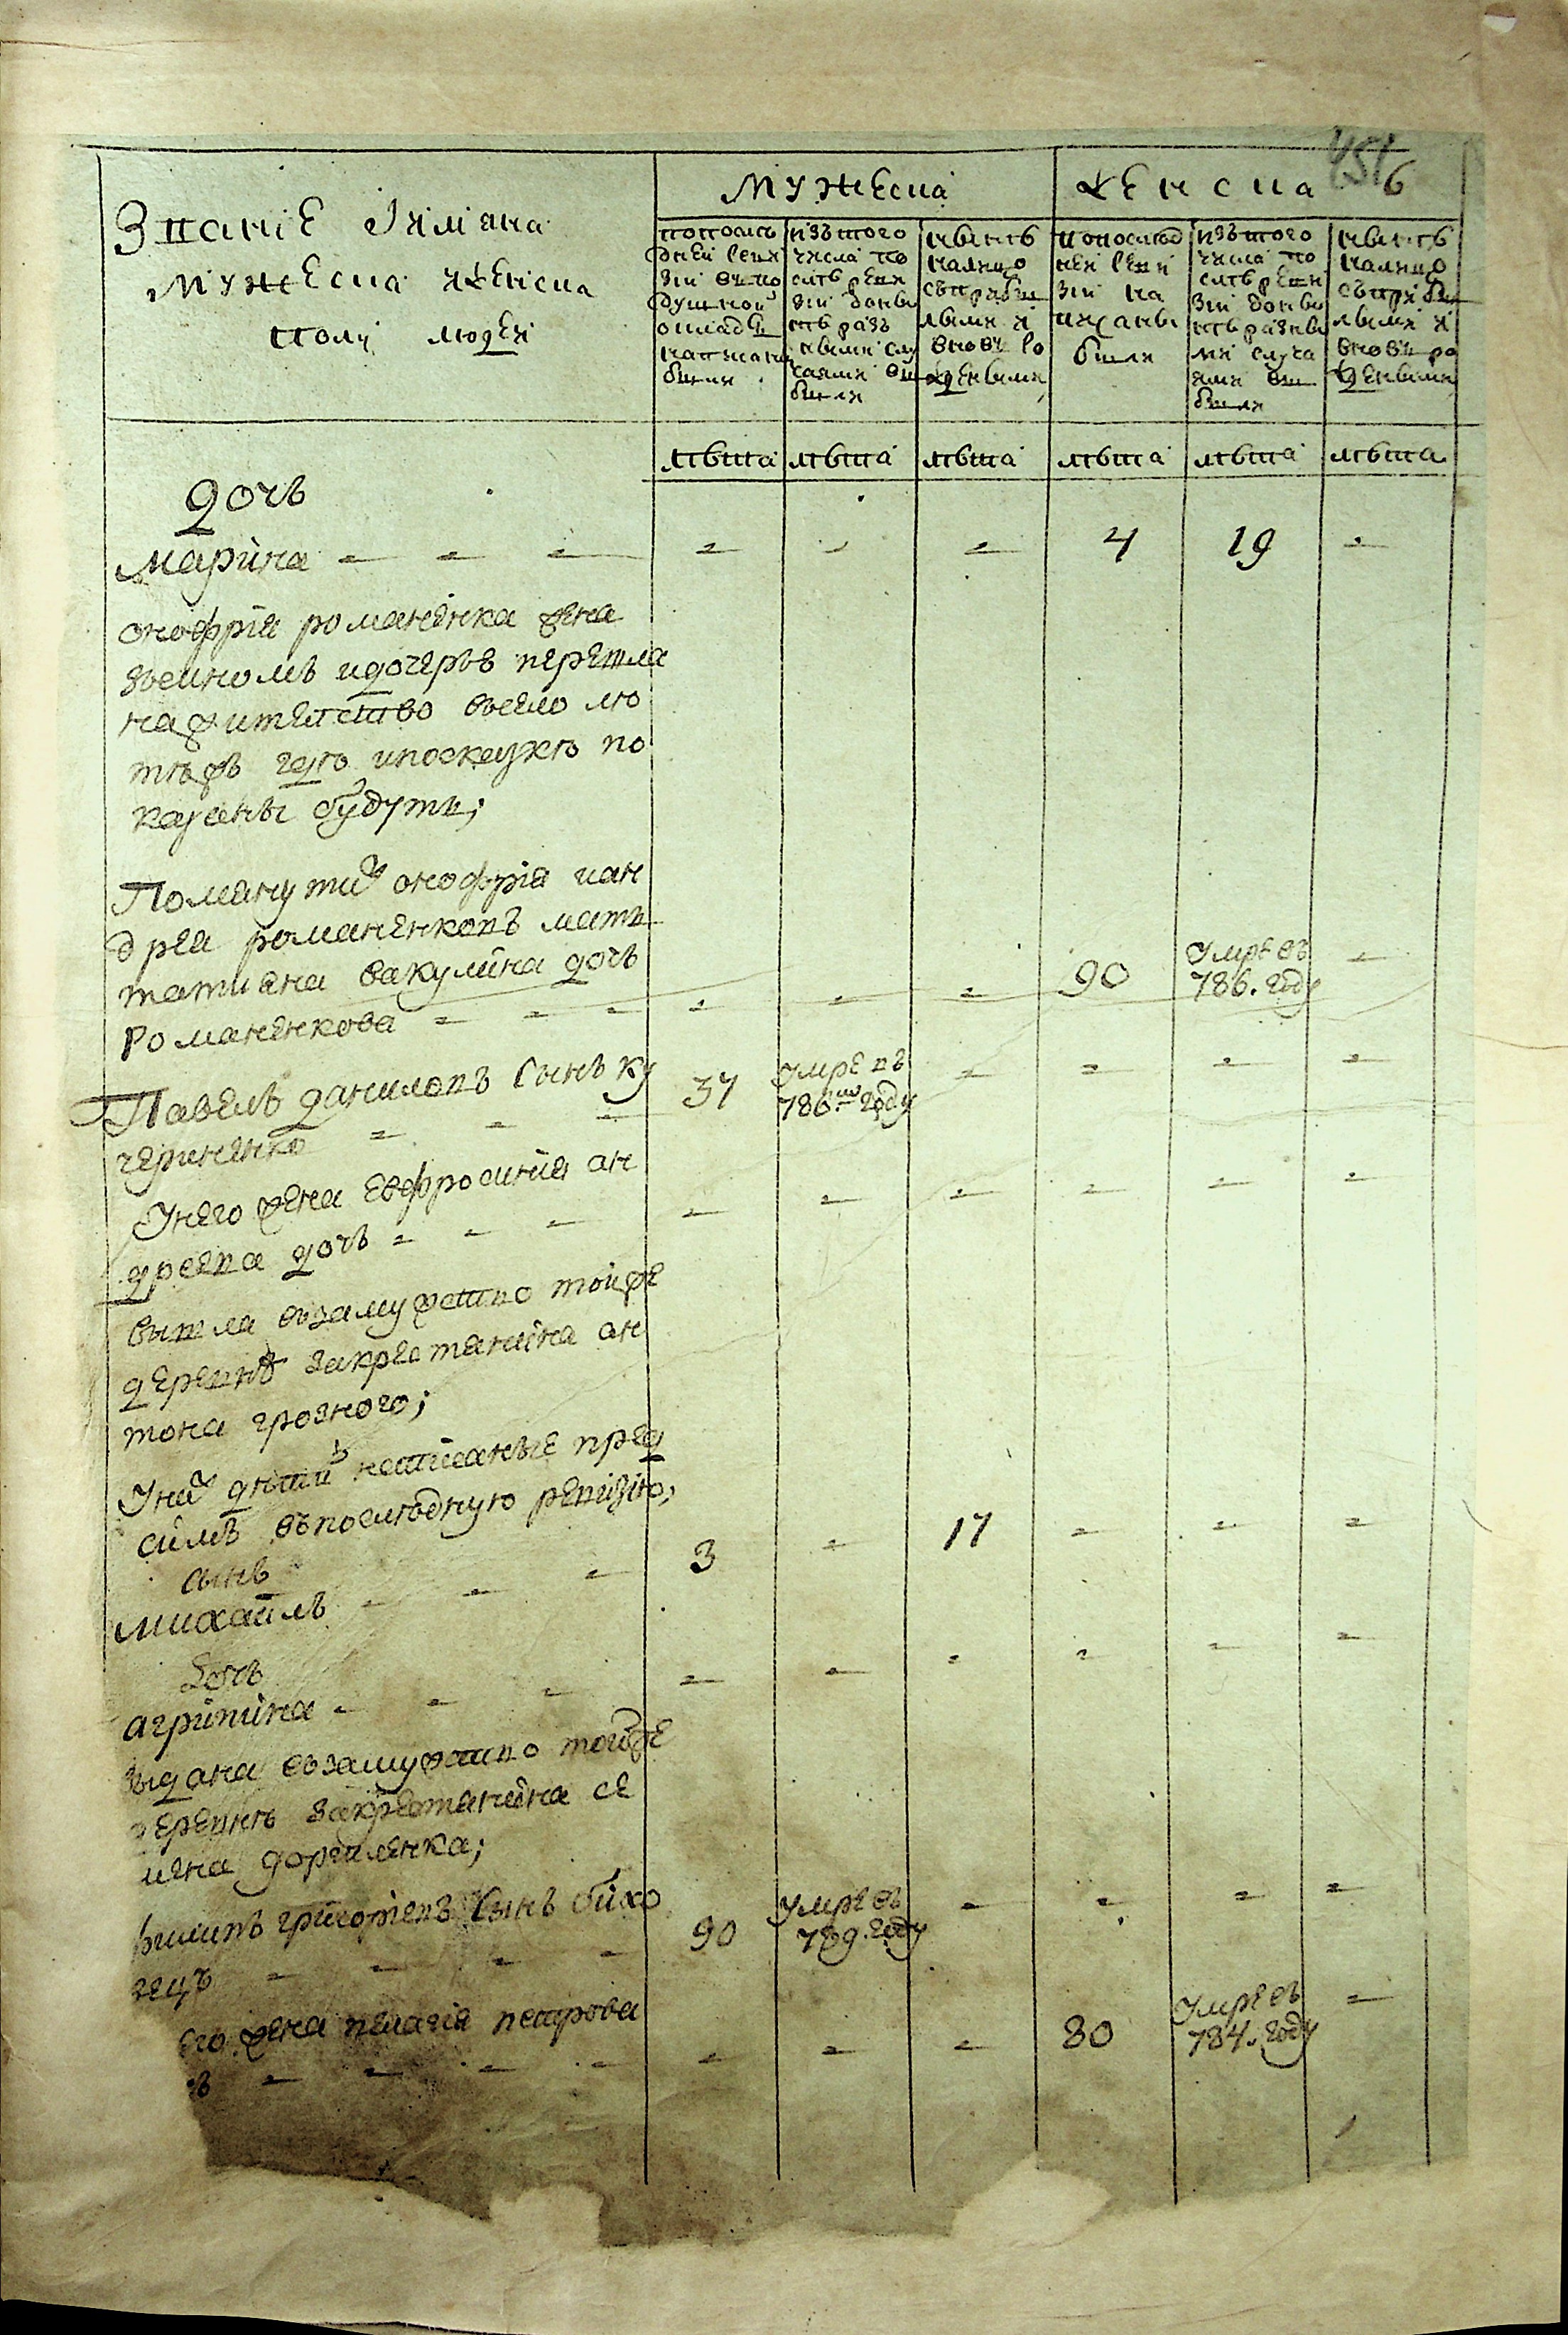 456
Званіе Іимяна
мужеска ижѣнска
полу людей
мужеска
женска
попослѣ
дней реви
зіи въпо
душной
окладъ
написаны
были
изътого
числа по
слѣ реви
зіи донын
нѣ разъ
ными слу
чаями вы
были
нынѣ
налицо
съприбы
лыми и
вновь ро
ждеными
попослѣд
ней реви
зіи на
писаны
были
изътого
числа по
слѣ реви
зіи донын
нѣ разны
ми случа
ями вы
были
нынѣ
налицо
съприбы
лыми и
вновь ро
ждеными
лѣта лѣта лѣта лѣта лѣта лѣта
дочь
марина - - - - - - 4 19 -
онофрія романенка жена
зсыномъ идочерью перешла
нажителство всело лю
тѣжъ гдѣ ипоскаскѣ по
казаны будутъ;
Помянутихъ онофрія иан
дрея романенковъ мать
татиана вакулина дочь
Романенкова - - - - - - 90 умре въ 786. году -
Павелъ даниловъ сынъ ку
чериненко - - - 37 умре въ 786мъ году - - - -
Унего жена евфросинія ан
дреева дочь - - - - - - - - -
вышла взамужство тойже
деревнѣ закрестянина ан
тона грозного;
Унихъ дѣти написаные пред
симъ въпослѣдную ревизію;
сынъ
михаилъ - - - 3 - 17 - - -
Дочь
агрипина - - - - - - - - -
выдана взамужство тойже
деревнѣ закрестянина се
мена
филипъ григориевъ сынъ бихо
вецъ - - - - 90 умре въ 789. году - - - -
его жена пелагія петрова
- - - - - - - 80 умре въ 784. году -